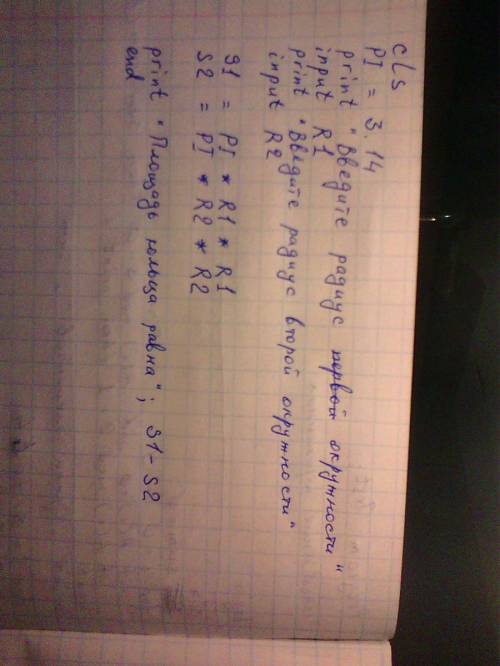 cLs
PI = 3.14
print "Введите радиус первой окружности"
input R1
print "Введите радиус второй окружности"
input R2
S1 = PI * R1 * R1
S2 = PI * R2 * R2
print "Площадь кольца равна"; S1-S2
end